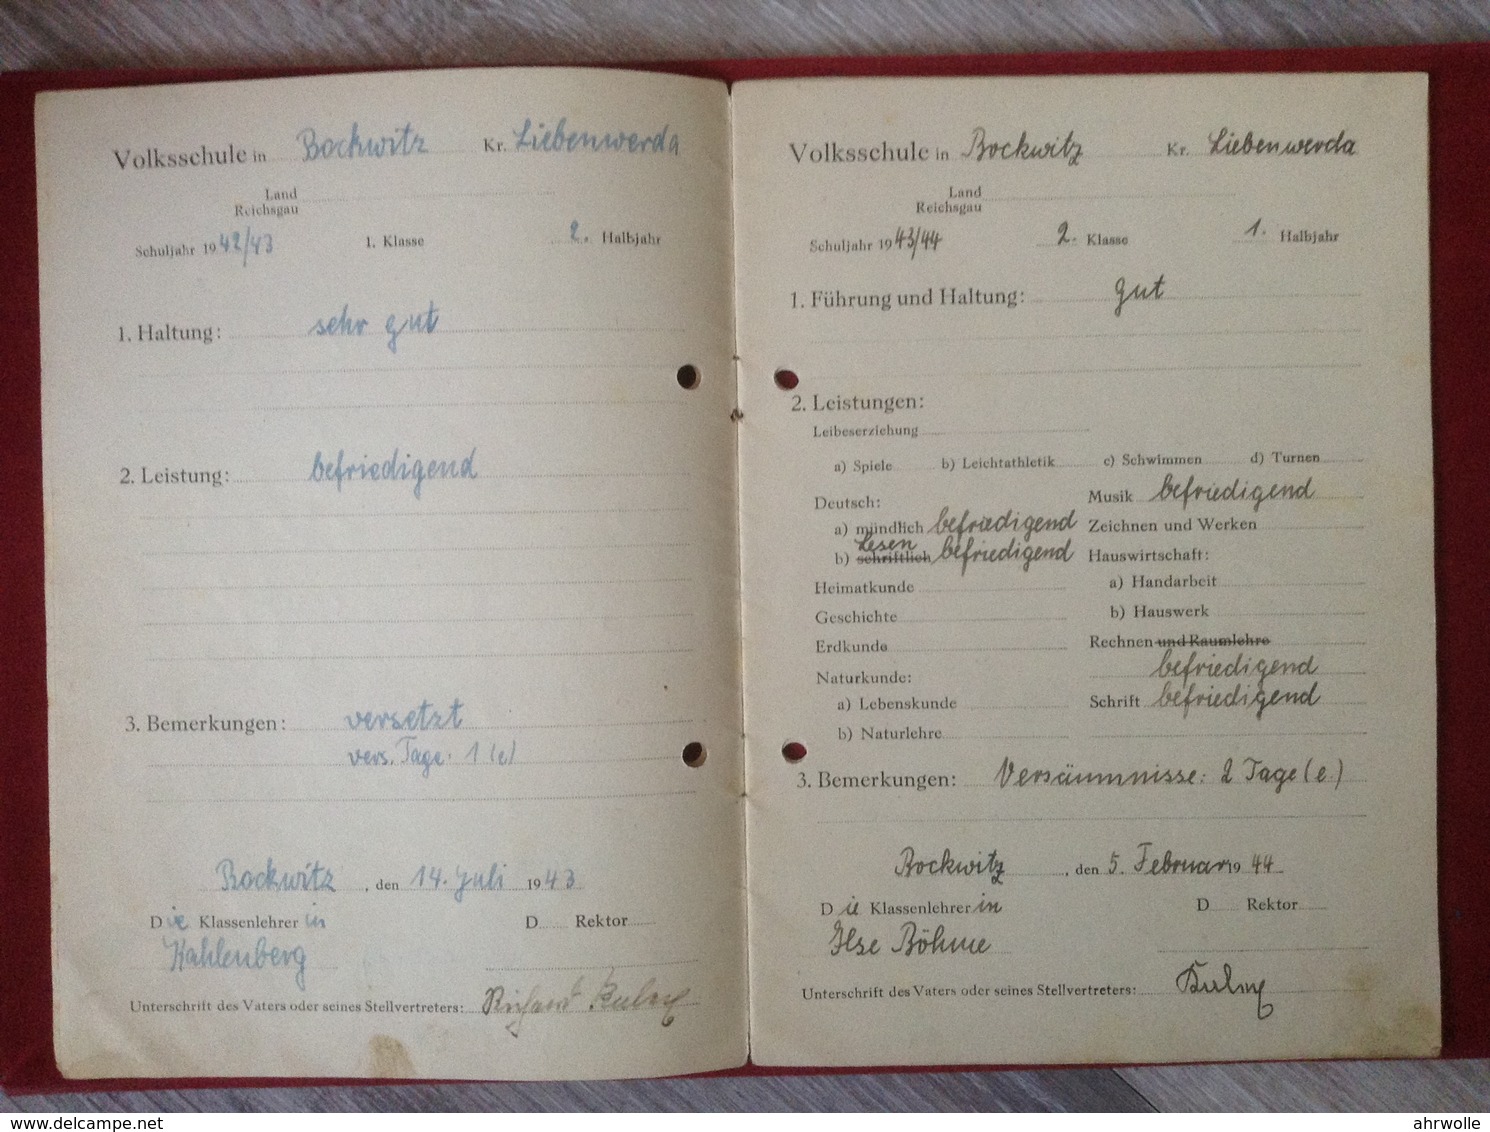 Volksschule in Bockwitz Kr. Liebenwerda
Land
Reichsgau
Schuljahr 1942/43 1. Klasse 2. Halbjahr
1. Haltung: sehr gut
2. Leistung: befriedigend
3. Bemerkungen: versetzt
vers. Tage: 1 (e)
Bockwitz, den 14. Juli 1943
Die Klassenlehrerin D Rektor
Kahlenberg
Unterschrift des Vaters oder seines Stellvertreters: Richard
Volksschule in Bockwitz Kr. Liebenwerda
Land
Reichsgau
Schuljahr 1943/44 2. Klasse 1. Halbjahr
1. Führung und Haltung: gut
2. Leistungen:
Leibeserziehung
a) Spiele b) Leichtathletik c) Schwimmen d) Turnen
Deutsch:
a) mündlich befriedigend
Lesen
b) schriftlich befriedigend
Heimatkunde
Geschichte
Erdkunde
Naturkunde:
a) Lebenskunde
b) Naturlehre
Musik befriedigend
Zeichnen und Werken
Hauswirtschaft:
a) Handarbeit
b) Hauswerk
Rechnen und Raumlehre
befriedigend
Schrift befriedigend
3. Bemerkungen: Versäumnisse: 2 Tage (e.)
Bockwitz, den 5. Februar 1944
Die Klassenlehrerin D Rektor
Ilse Böhme
Unterschrift des Vaters oder seines Stellvertreters:
www.delcampe.net
ahrwolle